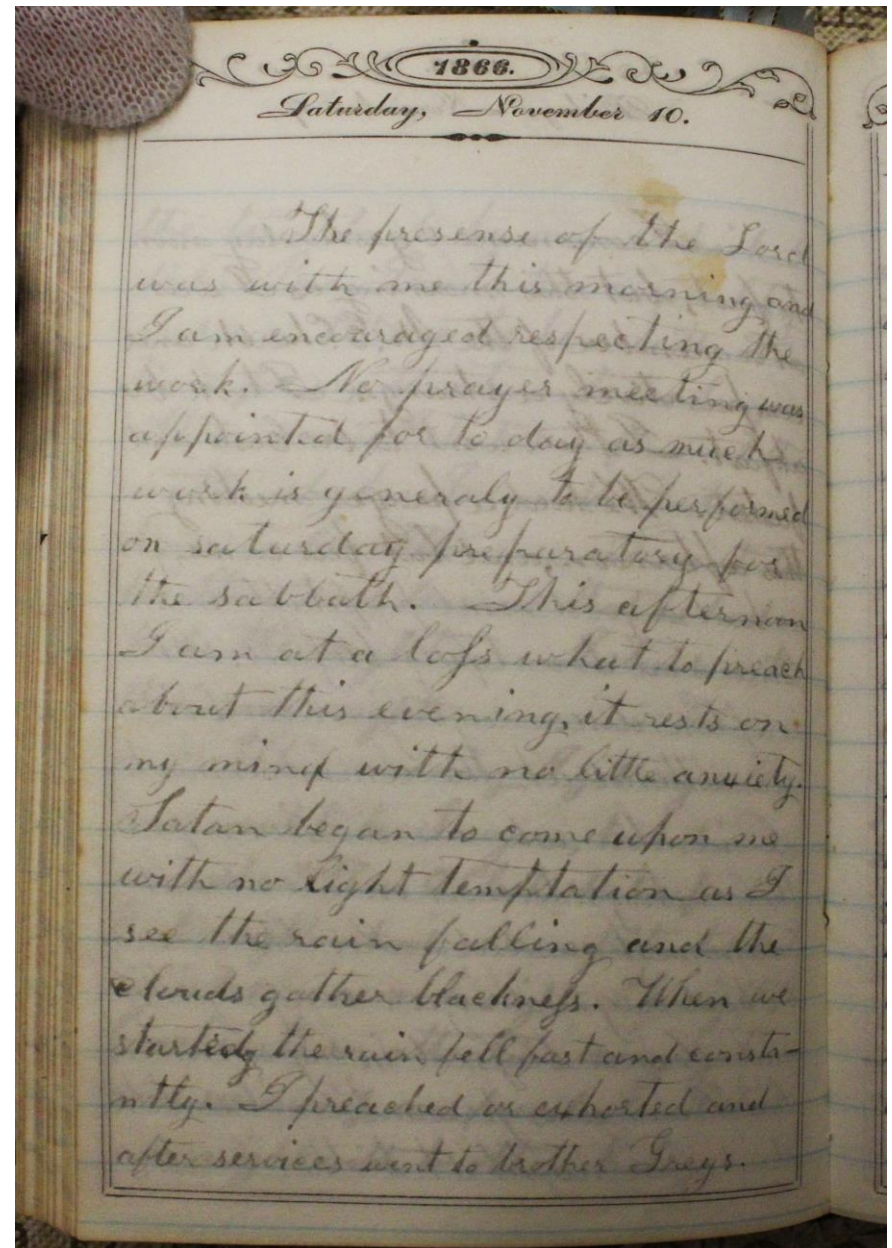 1866.
Saturday, November 10.
The presense of the Lord
was with me this morning and
I am encouraged respecting the
work. No prayer meeting was
appointed for to day as much
work is generaly to be performed
on saturday preparatory for
the sabbath. This afternoon
I am at a loſs what to preach
about this evening, it rests on
my mind with no little anxiety.
Satan began to come upon me
with no light temptation as I
see the rain falling and the
clouds gather blackneſs. When we
started the rain fell fast and consta-
ntly. I preached or exhorted and
after services went to brother Greys.